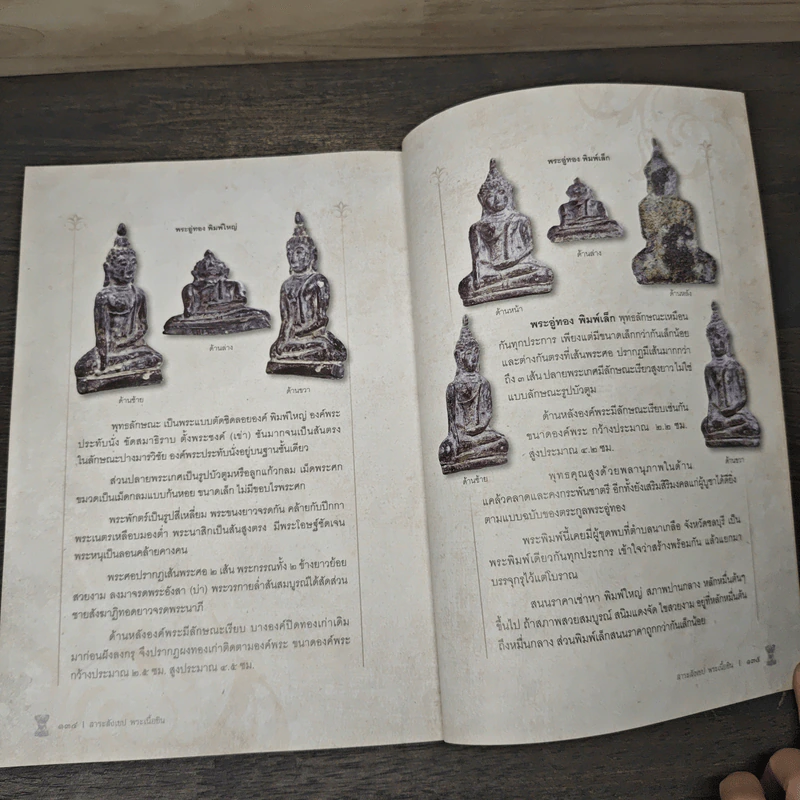 พระอู่ทอง พิมพ์ใหญ่
ด้านล่าง
ด้านซ้าย
ด้านขวา
พุทธลักษณะ เป็นพระแบบตัดชิดลอยองค์ พิมพ์ใหญ่ องค์พระ
ประทับนั่ง ขัดสมาธิราบ ตั้งพระชงค์ (เข่า) ขันมากจนเป็นสันตรง
ในลักษณะปางมารวิชัย องค์พระประทับนั่งอยู่บนฐานชั้นเดียว
ส่วนปลายพระเกศเป็นรูปบัวตูมหรือลูกแก้วกลม เม็ดพระศก
ขมวดเป็นเม็ดกลมแบบก้นหอย ขนาดเล็ก ไม่มีขอบไรพระศก
พระพักตร์เป็นรูปสี่เหลี่ยม พระขนงยาวจรดกัน คล้ายกับปีกกา
พระเนตรเหลือบมองต่ำ พระนาสิกเป็นสันสูงตรง มีพระโอษฐ์ชัดเจน
พระหนุเป็นลอนคล้ายคางคน
พระศอปรากฏเส้นพระศอ ๒ เส้น พระกรรณทั้ง ๒ ข้างยาวย้อย
สวยงาม ลงมาจรดพระอังสา (บ่า) พระวรกายล่ำสันสมบูรณ์ได้สัดส่วน
ชายสังฆาฏิทอดยาวจรดพระนาภี
ด้านหลังองค์พระมีลักษณะเรียบ บางองค์ปิดทองเก่าเดิม
มาก่อนฝังลงกรุ จึงปรากฏผงทองเก่าติดตามองค์พระ ขนาดองค์พระ
กว้างประมาณ ๒.๕ ซม. สูงประมาณ ๔.๕ ซม.
๑๓๔ | สาระสังเขป พระเนื้อชิน
พระอู่ทอง พิมพ์เล็ก
ด้านล่าง
ด้านหน้า
ด้านหลัง
พระอู่ทอง พิมพ์เล็ก พุทธลักษณะเหมือน
กันทุกประการ เพียงแต่มีขนาดเล็กกว่ากันเล็กน้อย
และต่างกันตรงที่เส้นพระศอ ปรากฏมีเส้นมากกว่า
ถึง ๓ เส้น ปลายพระเกศมีลักษณะเรียวสูงยาวไม่ใช่
แบบลักษณะรูปบัวตูม
ด้านหลังองค์พระมีลักษณะเรียบเช่นกัน
ขนาดองค์พระ กว้างประมาณ ๒.๒ ซม.
สูงประมาณ ๔.๒ ซม.
ด้านซ้าย
ด้านขวา
พุทธคุณสูงด้วยพลานุภาพในด้าน
แคล้วคลาดและคงกระพันชาตรี อีกทั้งยังเสริมสิริมงคลแก่ผู้บูชาได้ดียิ่ง
ตามแบบฉบับของตระกูลพระอู่ทอง
พระพิมพ์นี้เคยมีผู้ขุดพบที่ตำบลนาเกลือ จังหวัดชลบุรี เป็น
พระพิมพ์เดียวกันทุกประการ เข้าใจว่าสร้างพร้อมกัน แล้วแยกมา
บรรจุกรุไว้แต่โบราณ
สนนราคาเช่าหา พิมพ์ใหญ่ สภาพปานกลาง หลักหมื่นต้นๆ
ขึ้นไป ถ้าสภาพสวยสมบูรณ์ สนิมแดงจัด ไขสวยงาม อยู่ที่หลักหมื่นต้น
ถึงหมื่นกลาง ส่วนพิมพ์เล็กสนนราคาถูกกว่ากันเล็กน้อย
สาระสังเขป พระเนื้อชิน | ๑๓๕